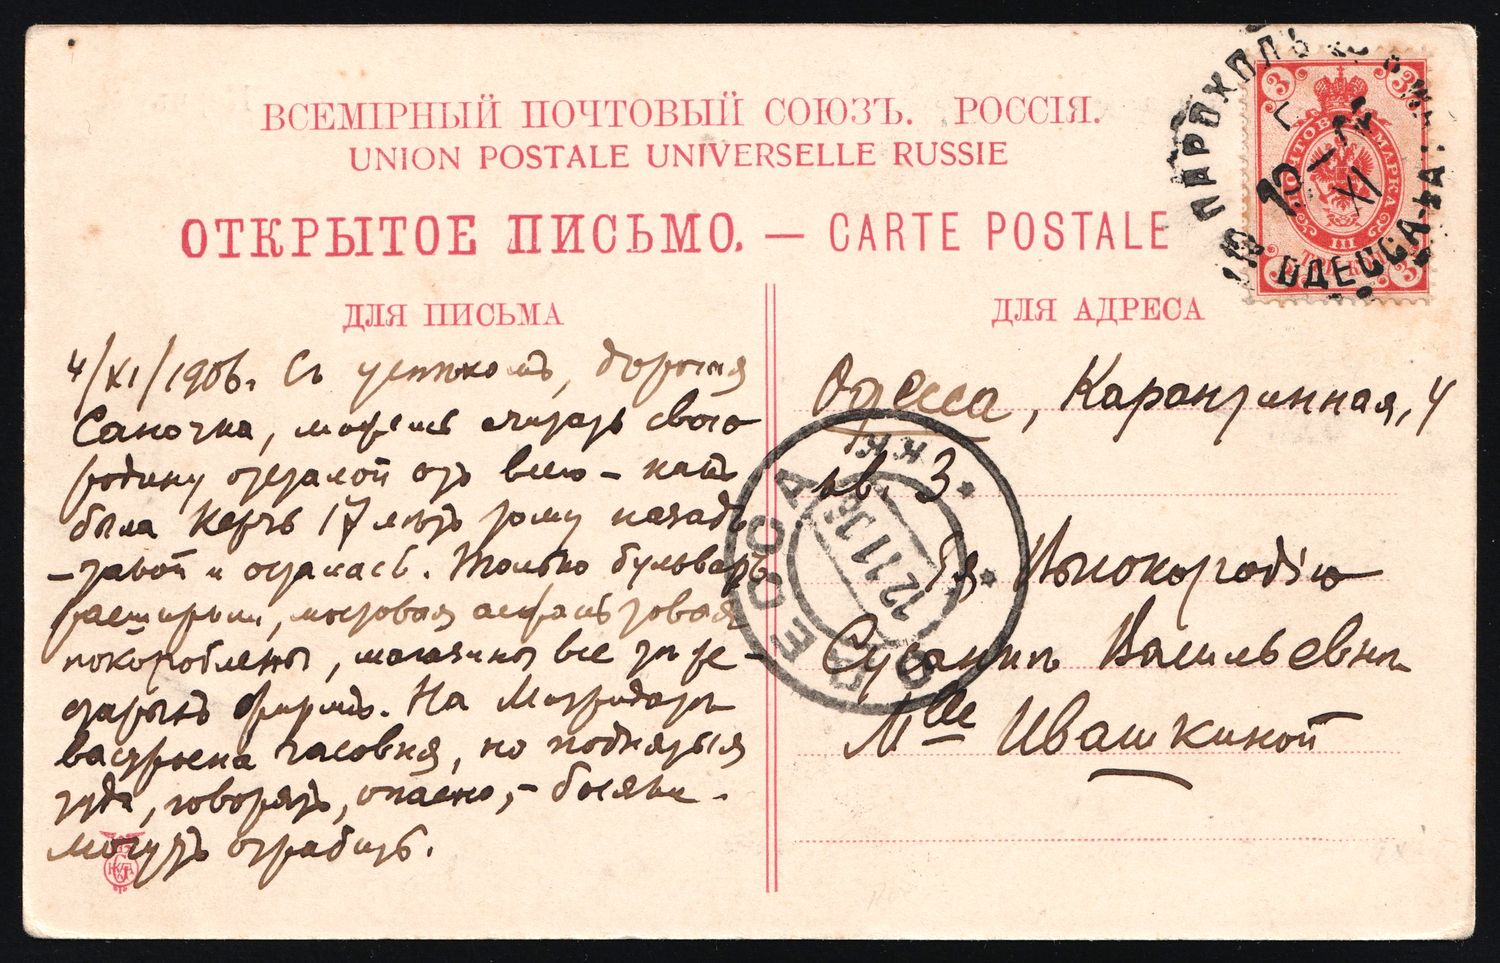 ВСЕМІРНЫЙ ПОЧТОВЫЙ СОЮЗЪ. РОССІЯ.
UNION POSTALE UNIVERSELLE RUSSIE
ОТКРЫТОЕ ПИСЬМО. — CARTE POSTALE
ДЛЯ ПИСЬМА
4/XI/1906. Съ дорогая
Саночка, можешь считать свою
родину отсталой отъ всего – какъ
была Керчь 17 лѣтъ тому назадъ
– такой и осталась. Только бульваръ
расширили, мостовая асфальтовая
покороблена, магазины все те же –
старыхъ фирмъ. На Митридатѣ
выстроена часовня, но подняться
туда, говорятъ, опасно, – босяки
могутъ ограбить.
ДЛЯ АДРЕСА
Одесса, Карантинная, 4
кв. 3
Ея Высокородію
Сусаннѣ Васильевнѣ
Mlle Ивашкиной
3 3
ПОЧТОВАЯ МАРКА
III
3 3
ПАРОХОДЪ
10 XI
ОДЕССА
ОДЕССА
12.11.06